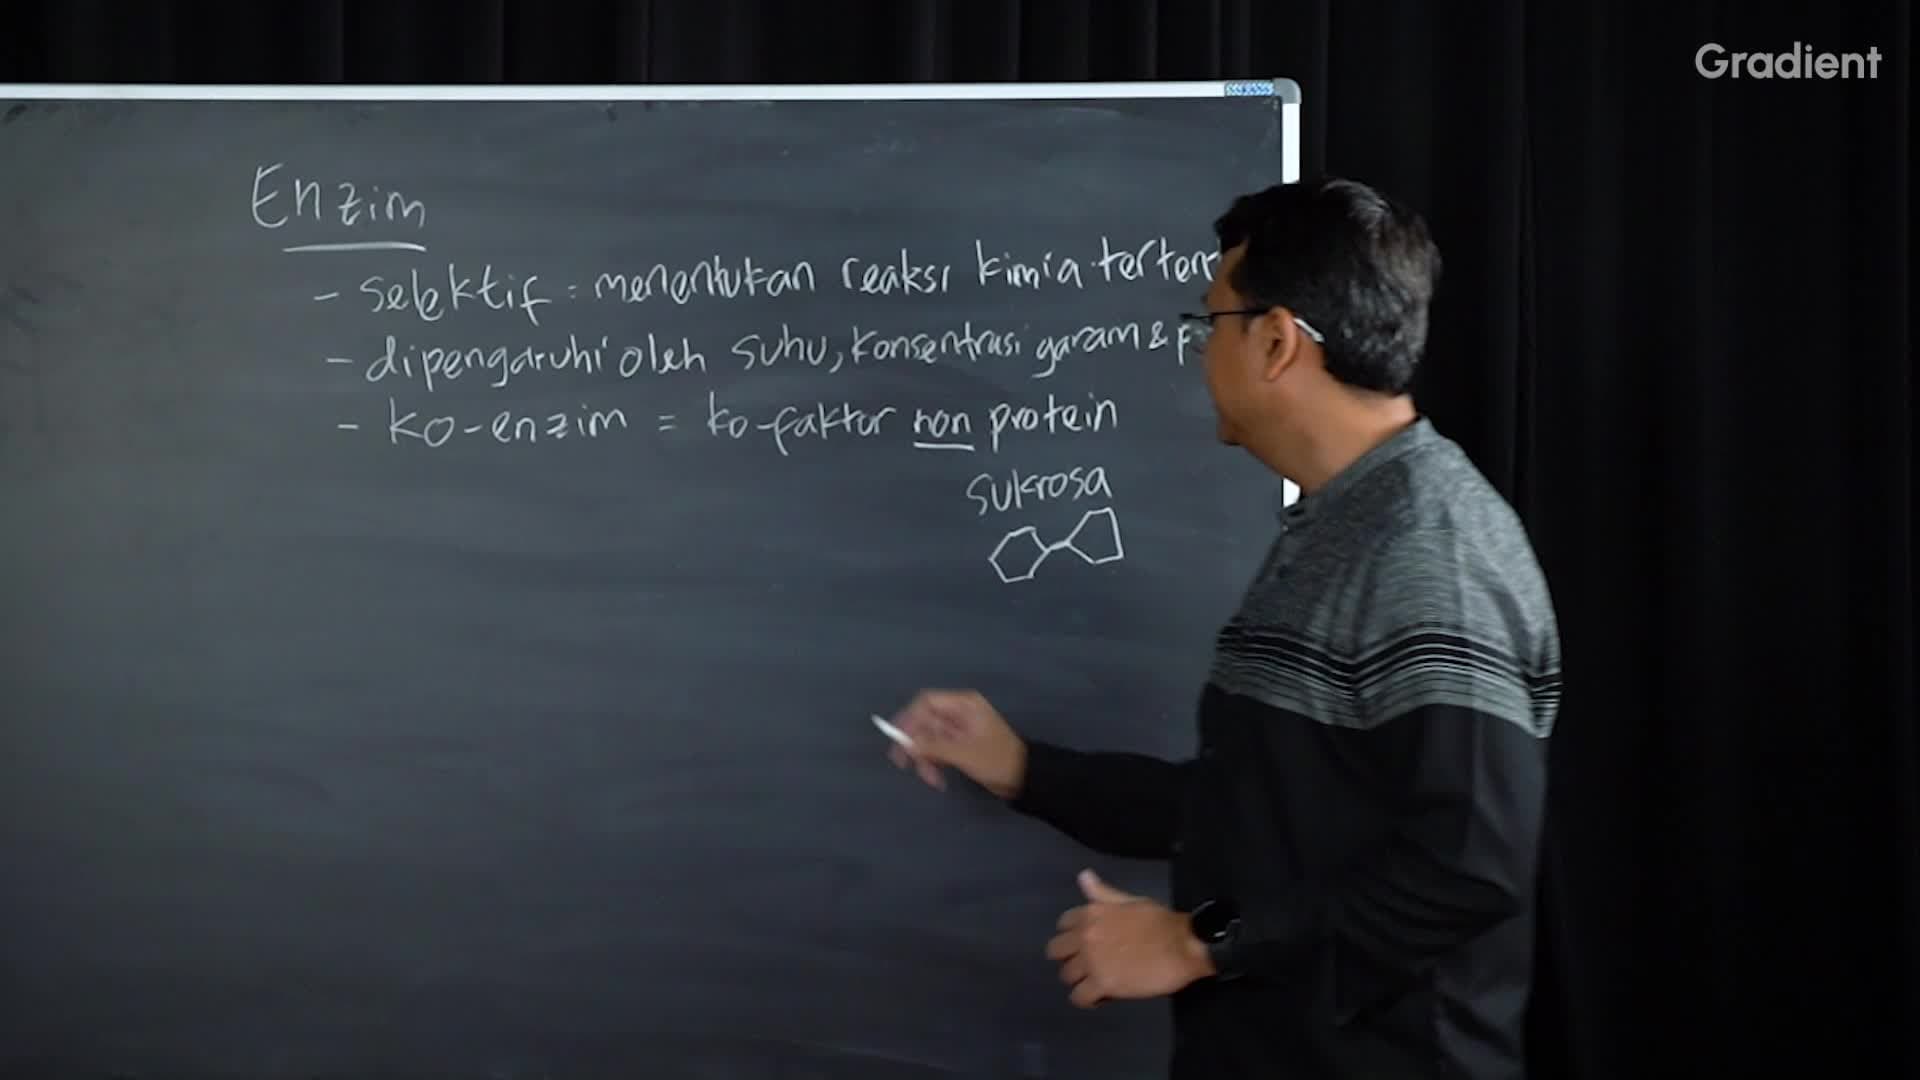 Gradient
Enzim
- Selektif = menentukan reaksi kimia
- dipengaruhi oleh suhu, konsentrasi garam &
- KO-enzim = ko-faktor non protein
sukrosa